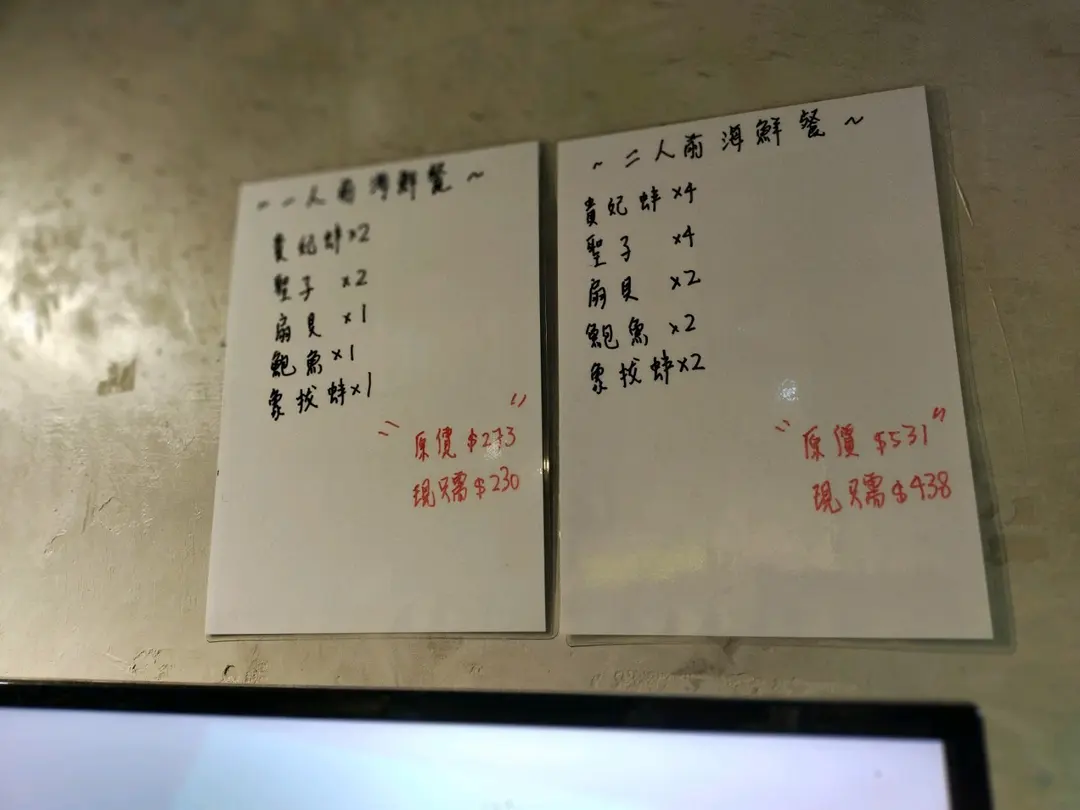 ~一人前海鮮餐~
貴妃蚌x2
聖子 x2
扇貝 x1
鮑魚x1
象拔蚌x1
"原價 $273"
現只需 $230
~二人前海鮮餐~
貴妃蚌x4
聖子 x4
扇貝 x2
鮑魚 x2
象拔蚌x2
"原價 $531"
現只需 $438